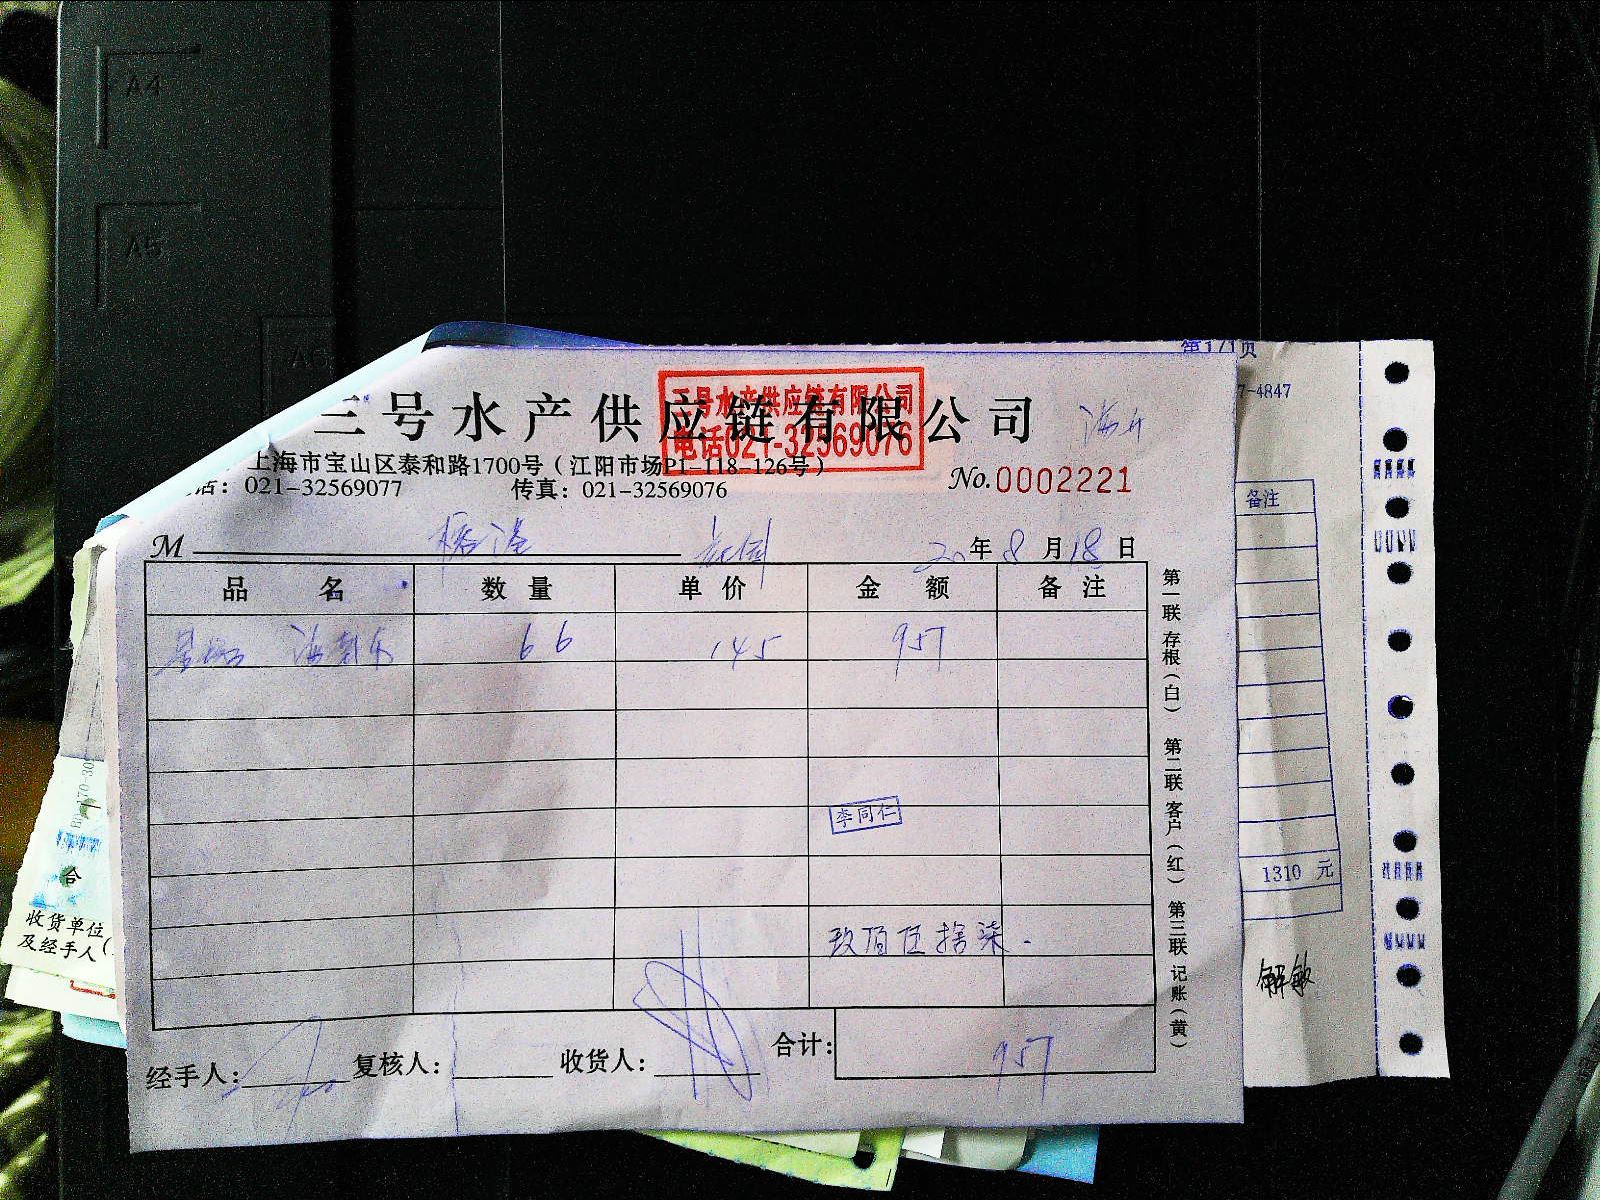 A4
A5
第1/1页
7-4847
三号水产供应链有限公司
三号水产供应链有限公司
电话021-32569076
上海市宝山区泰和路1700号（江阳市场P1-118-126号）
话：021-32569077 传真：021-32569076
No.0002221
M 20年8月18日
品名 数量 单价 金额 备注
66 145 957
李同仁
玖佰伍拾柒.
经手人： 复核人： 收货人： 合计： 957
第一联 存根（白） 第二联 客户（红） 第三联 记账（黄）
备注
1310 元
解敏
合
收货单位
及经手人（